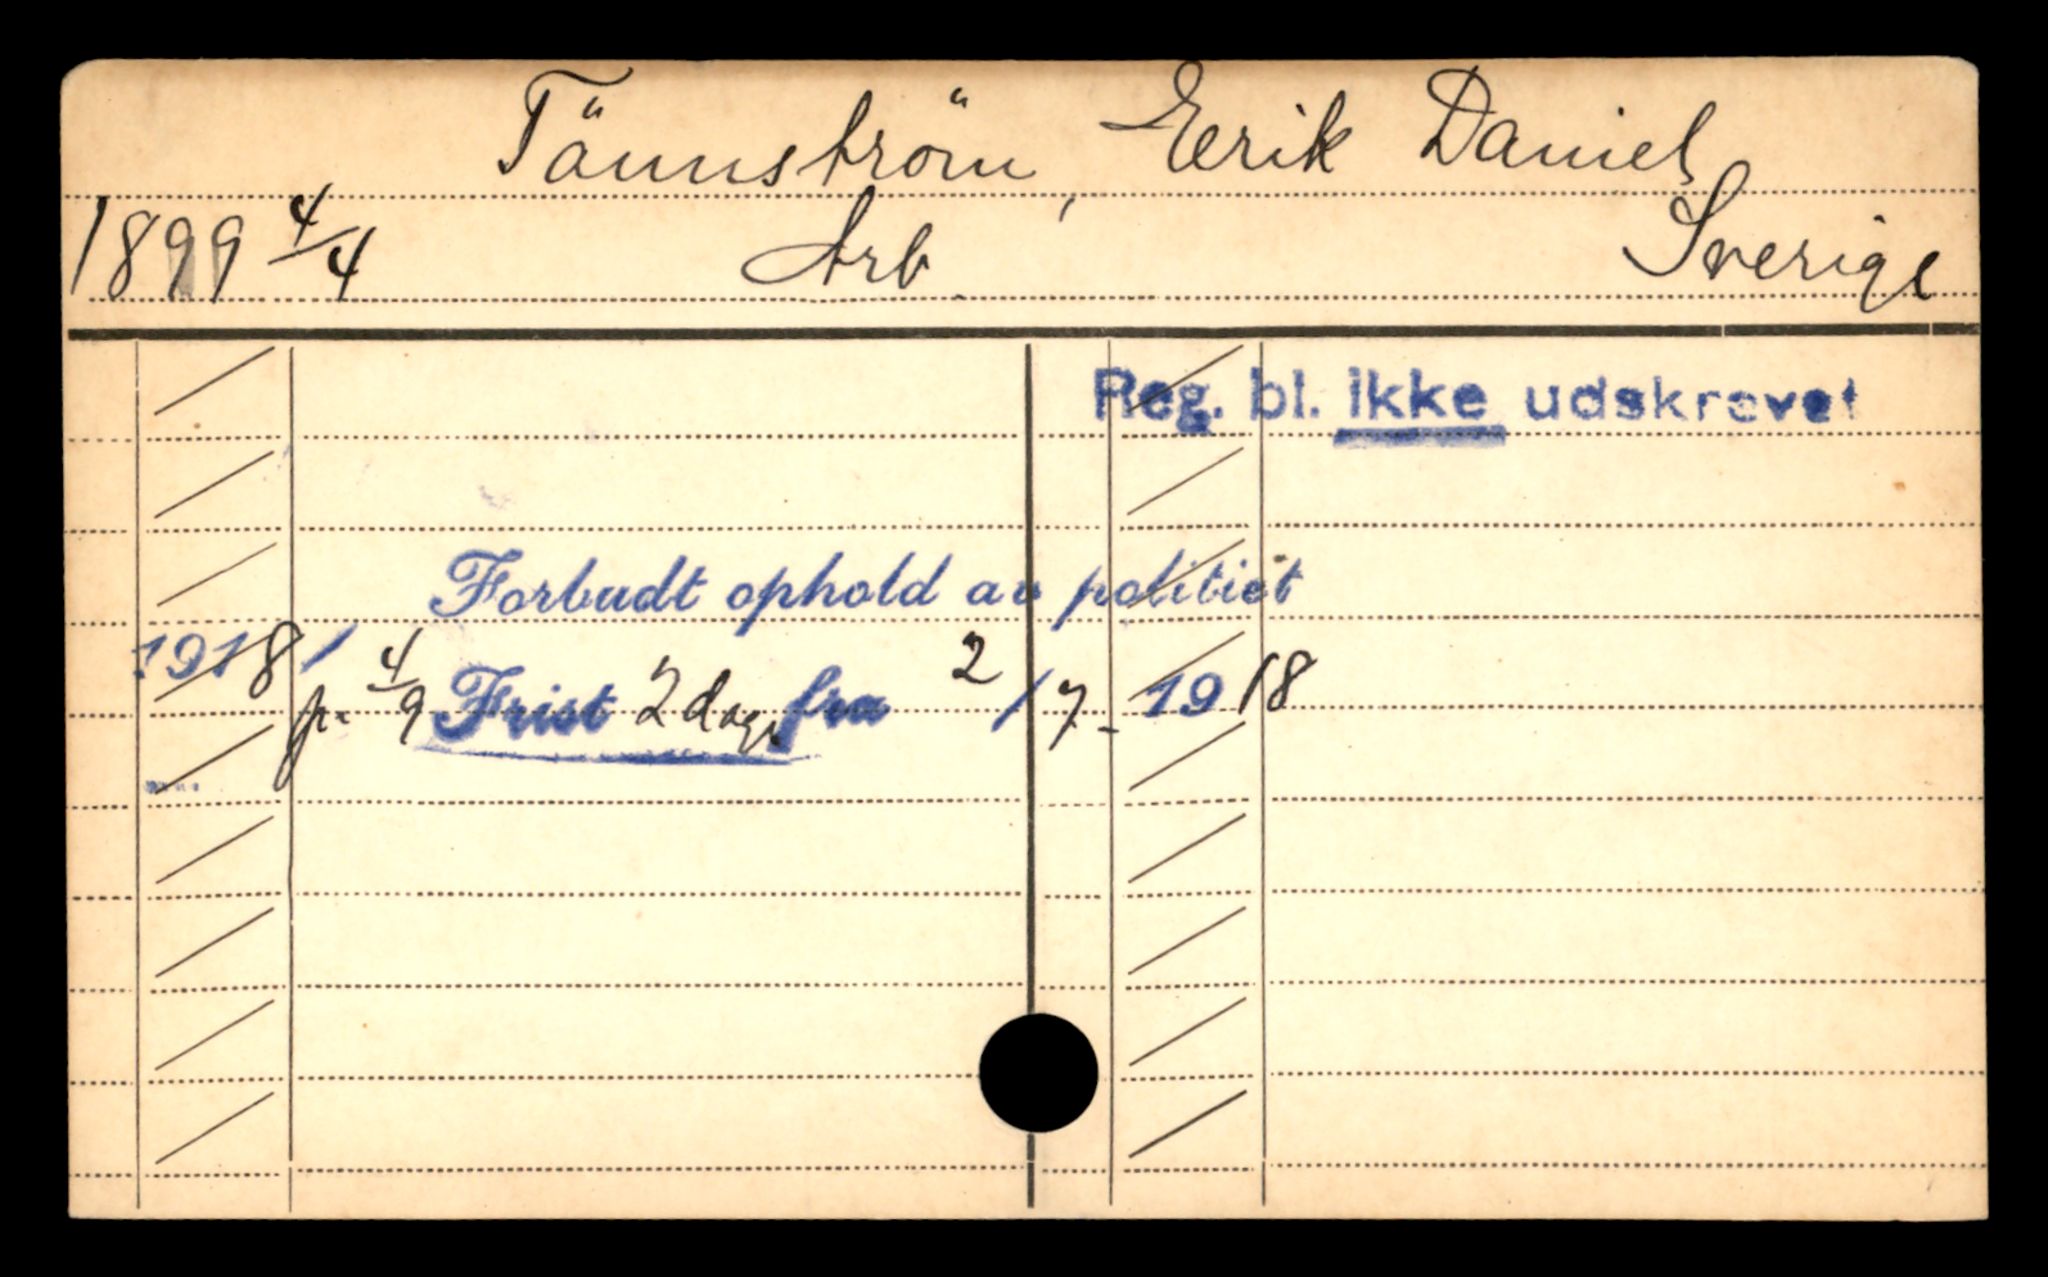 Tännström, Erik Daniel
1899 4/4 Arb. Sverige
Reg. bl. ikke udskrevet
Forbudt ophold av politiet
1918 /
4/9 Frist 2 dag. fra 2/7-1918